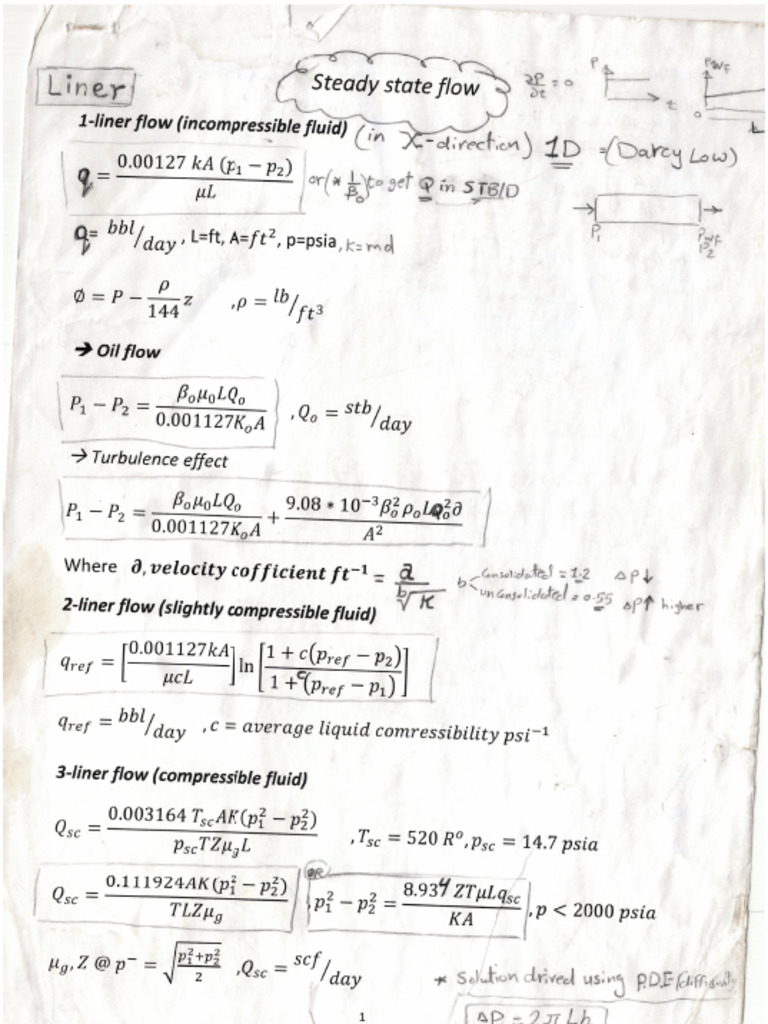 Liner
Steady state flow
∂P/∂t = 0
P
t
Pwf
0
t
1-liner flow (incompressible fluid) (in X-direction) 1D =(Darcy Low)
q = 0.00127 kA (p₁ − p₂) / μL or (* 1/βo) to get Q in STB/D
P₁
Pwf
P₂
q= bbl/day, L=ft, A=ft², p=psia, k=md
Ø = P − ρ/144 z ,ρ = lb/ft³
→ Oil flow
P₁ − P₂ = βₒμ₀LQₒ / 0.001127KₒA , Qₒ = stb/day
→ Turbulence effect
P₁ − P₂ = βₒμ₀LQₒ / 0.001127KₒA + 9.08 * 10⁻³βₒ²ρₒLQₒ²∂ / A²
Where ∂, velocity cofficient ft⁻¹ = a / ᵇ√K b consolidated = 1.2 ΔP↓
unconsolidated = 0.55 ΔP↑ higher
2-liner flow (slightly compressible fluid)
q_ref = [0.001127kA / μcL] ln [1 + c(p_ref − p₂) / 1 + c(p_ref − p₁)]
q_ref = bbl/day , c = average liquid comressibility psi⁻¹
3-liner flow (compressible fluid)
Q_sc = 0.003164 T_sc AK(p₁² − p₂²) / p_sc TZμ_g L , T_sc = 520 R°, p_sc = 14.7 psia
Q_sc = 0.111924AK(p₁² − p₂²) / TLZμ_g OR , p₁² − p₂² = 8.934 ZTμLq_sc / KA , p < 2000 psia
μ_g, Z @ p⁻ = √(p₁²+p₂² / 2) , Q_sc = scf/day
* Solution drived using P.D.E/diffusivity
1
ΔP = 2πLh